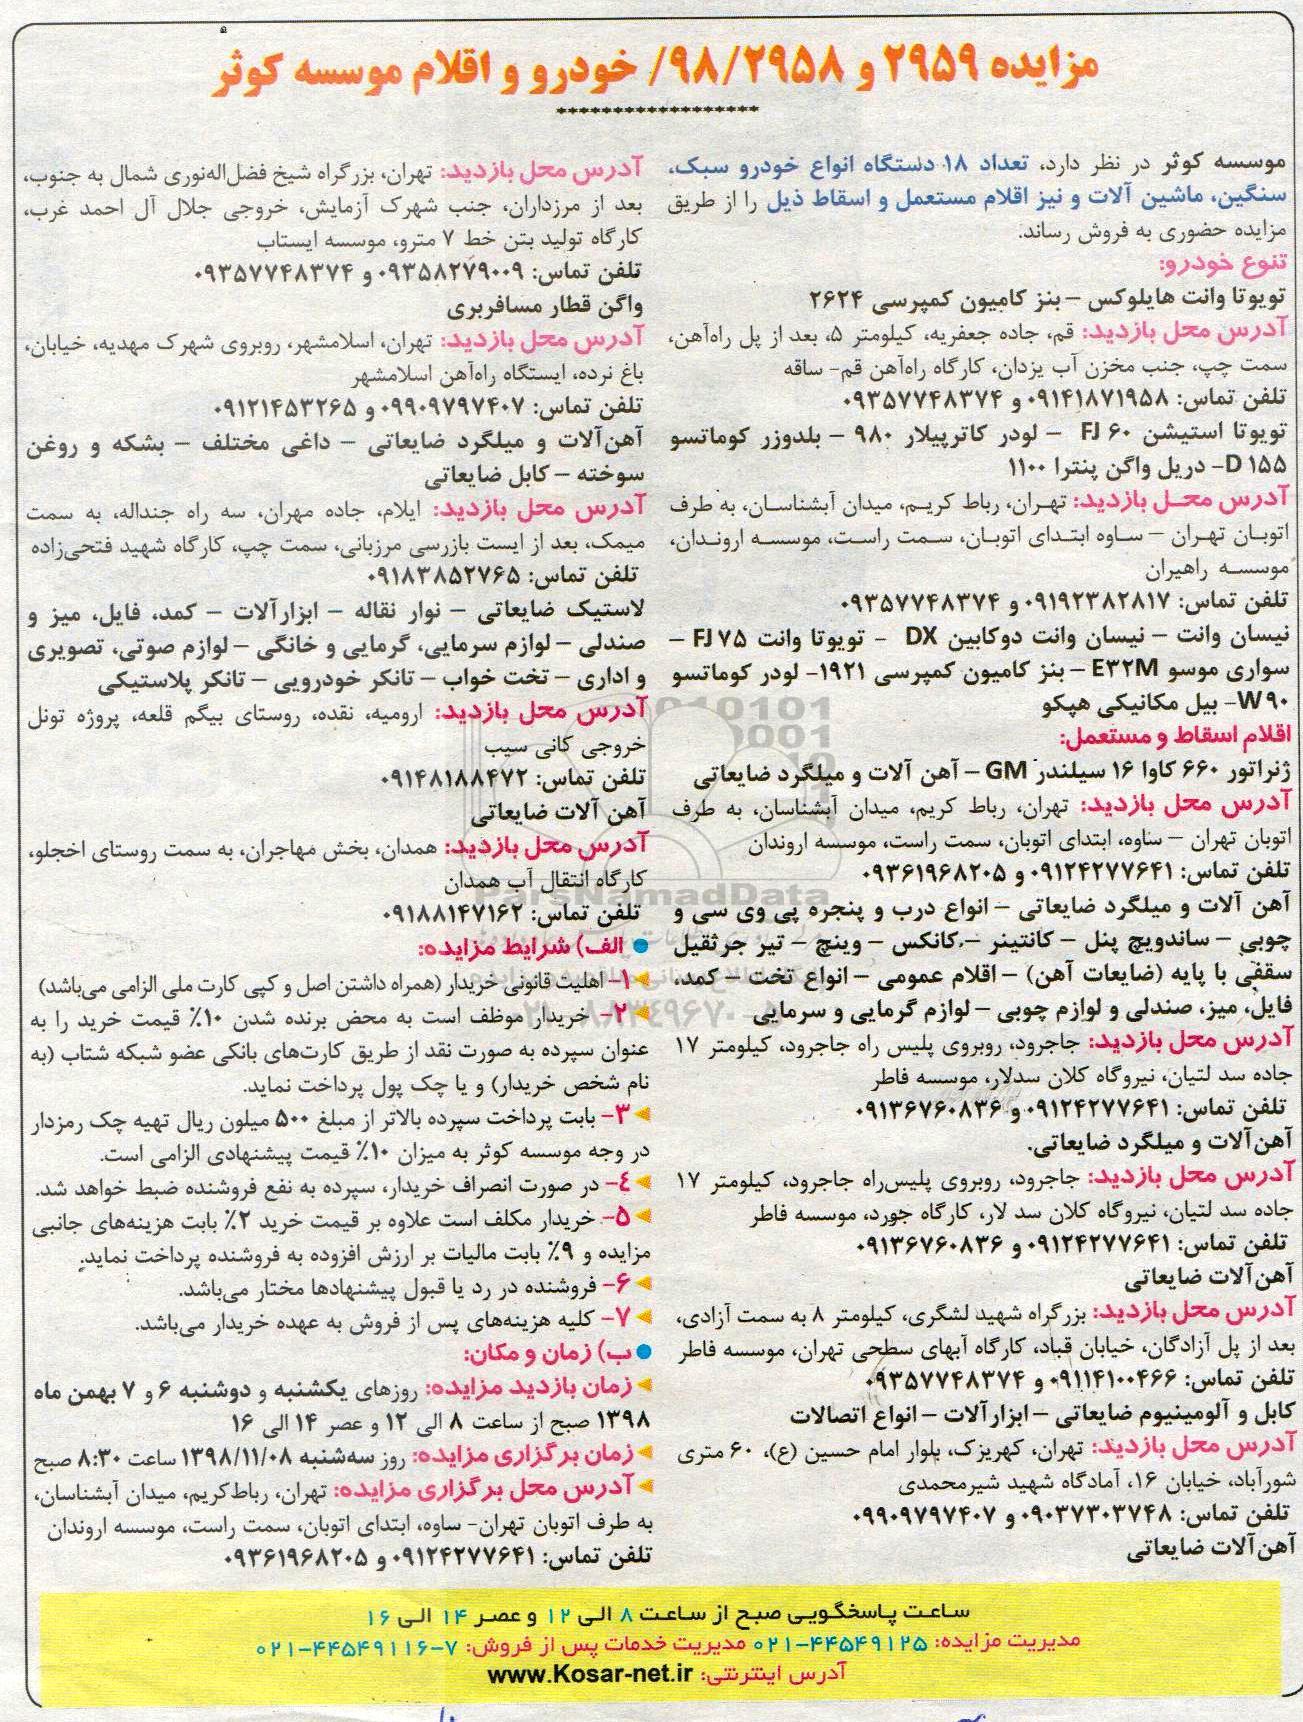 مزایده ۲۹۵۹ و ۹۸/۲۹۵۸/ خودرو و اقلام موسسه کوثر
******************
موسسه کوثر در نظر دارد، تعداد ۱۸ دستگاه انواع خودرو سبک،
سنگین، ماشین آلات و نیز اقلام مستعمل و اسقاط ذیل را از طریق
مزایده حضوری به فروش رساند.
تنوع خودرو:
تویوتا وانت هایلوکس – بنز کامیون کمپرسی ۲۶۲۴
آدرس محل بازدید: قم، جاده جعفریه، کیلومتر ۵، بعد از پل راه‌آهن،
سمت چپ، جنب مخزن آب یزدان، کارگاه راه‌آهن قم- ساقه
تلفن تماس: ۰۹۱۴۱۸۷۱۹۵۸ و ۰۹۳۵۷۷۴۸۳۷۴
تویوتا استیشن FJ ۶۰ – لودر کاترپیلار ۹۸۰ – بلدوزر کوماتسو
D ۱۵۵- دریل واگن پنترا ۱۱۰۰
آدرس محل بازدید: تهران، رباط کریم، میدان آبشناسان، به طرف
اتوبان تهران – ساوه ابتدای اتوبان، سمت راست، موسسه اروندان،
موسسه راهیران
تلفن تماس: ۰۹۱۹۲۳۸۲۸۱۷ و ۰۹۳۵۷۷۴۸۳۷۴
نیسان وانت – نیسان وانت دوکابین DX - تویوتا وانت FJ ۷۵ –
سواری موسو E۳۲M – بنز کامیون کمپرسی ۱۹۲۱- لودر کوماتسو
W ۹۰- بیل مکانیکی هپکو
اقلام اسقاط و مستعمل:
ژنراتور ۶۶۰ کاوا ۱۶ سیلندر GM – آهن آلات و میلگرد ضایعاتی
آدرس محل بازدید: تهران، رباط کریم، میدان آبشناسان، به طرف
اتوبان تهران – ساوه، ابتدای اتوبان، سمت راست، موسسه اروندان
تلفن تماس: ۰۹۱۲۴۲۷۷۶۴۱ و ۰۹۳۶۱۹۶۸۲۰۵
آهن آلات و میلگرد ضایعاتی – انواع درب و پنجره پی وی سی و
چوبی – ساندویچ پنل – کانتینر – کانکس – وینچ – تیر جرثقیل
سقفی با پایه (ضایعات آهن) – اقلام عمومی – انواع تخت – کمد،
فایل، میز، صندلی و لوازم چوبی – لوازم گرمایی و سرمایی
آدرس محل بازدید: جاجرود، روبروی پلیس راه جاجرود، کیلومتر ۱۷
جاده سد لتیان، نیروگاه کلان سدلار، موسسه فاطر
تلفن تماس: ۰۹۱۲۴۲۷۷۶۴۱ و ۰۹۱۳۶۷۶۰۸۳۶
آهن‌آلات و میلگرد ضایعاتی.
آدرس محل بازدید: جاجرود، روبروی پلیس‌راه جاجرود، کیلومتر ۱۷
جاده سد لتیان، نیروگاه کلان سد لار، کارگاه جورد، موسسه فاطر
تلفن تماس: ۰۹۱۲۴۲۷۷۶۴۱ و ۰۹۱۳۶۷۶۰۸۳۶
آهن‌آلات ضایعاتی
آدرس محل بازدید: بزرگراه شهید لشگری، کیلومتر ۸ به سمت آزادی،
بعد از پل آزادگان، خیابان قباد، کارگاه آبهای سطحی تهران، موسسه فاطر
تلفن تماس: ۰۹۱۱۴۱۰۰۴۶۶ و ۰۹۳۵۷۷۴۸۳۷۴
کابل و آلومینیوم ضایعاتی – ابزارآلات – انواع اتصالات
آدرس محل بازدید: تهران، کهریزک، بلوار امام حسین (ع)، ۶۰ متری
شورآباد، خیابان ۱۶، آمادگاه شهید شیرمحمدی
تلفن تماس: ۰۹۰۳۷۳۰۳۷۴۸ و ۰۹۹۰۹۷۹۷۴۰۷
آهن‌آلات ضایعاتی
آدرس محل بازدید: تهران، بزرگراه شیخ فضل‌اله‌نوری شمال به جنوب،
بعد از مرزداران، جنب شهرک آزمایش، خروجی جلال آل احمد غرب،
کارگاه تولید بتن خط ۷ مترو، موسسه ایستاب
تلفن تماس: ۰۹۳۵۸۲۷۹۰۰۹ و ۰۹۳۵۷۷۴۸۳۷۴
واگن قطار مسافربری
آدرس محل بازدید: تهران، اسلامشهر، روبروی شهرک مهدیه، خیابان،
باغ نرده، ایستگاه راه‌آهن اسلامشهر
تلفن تماس: ۰۹۹۰۹۷۹۷۴۰۷ و ۰۹۱۲۱۴۵۳۲۶۵
آهن‌آلات و میلگرد ضایعاتی – داغی مختلف – بشکه و روغن
سوخته – کابل ضایعاتی
آدرس محل بازدید: ایلام، جاده مهران، سه راه جنداله، به سمت
میمک، بعد از ایست بازرسی مرزبانی، سمت چپ، کارگاه شهید فتحی‌زاده
تلفن تماس: ۰۹۱۸۳۸۵۲۷۶۵
لاستیک ضایعاتی – نوار نقاله – ابزارآلات – کمد، فایل، میز و
صندلی – لوازم سرمایی، گرمایی و خانگی – لوازم صوتی، تصویری
و اداری – تخت خواب – تانکر خودرویی – تانکر پلاستیکی
آدرس محل بازدید: ارومیه، نقده، روستای بیگم قلعه، پروژه تونل
خروجی کانی سیب
تلفن تماس: ۰۹۱۴۸۱۸۸۴۷۲
آهن آلات ضایعاتی
آدرس محل بازدید: همدان، بخش مهاجران، به سمت روستای اخجلو،
کارگاه انتقال آب همدان
تلفن تماس: ۰۹۱۸۸۱۴۷۱۶۲
الف) شرایط مزایده:
۱- اهلیت قانونی خریدار (همراه داشتن اصل و کپی کارت ملی الزامی می‌باشد)
۲- خریدار موظف است به محض برنده شدن ۱۰٪ قیمت خرید را به
عنوان سپرده به صورت نقد از طریق کارت‌های بانکی عضو شبکه شتاب (به
نام شخص خریدار) و یا چک پول پرداخت نماید.
۳- بابت پرداخت سپرده بالاتر از مبلغ ۵۰۰ میلون ریال تهیه چک رمزدار
در وجه موسسه کوثر به میزان ۱۰٪ قیمت پیشنهادی الزامی است.
۴- در صورت انصراف خریدار، سپرده به نفع فروشنده ضبط خواهد شد.
۵- خریدار مکلف است علاوه بر قیمت خرید ۲٪ بابت هزینه‌های جانبی
مزایده و ۹٪ بابت مالیات بر ارزش افزوده به فروشنده پرداخت نماید.
۶- فروشنده در رد یا قبول پیشنهادها مختار می‌باشد.
۷- کلیه هزینه‌های پس از فروش به عهده خریدار می‌باشد.
ب) زمان و مکان:
زمان بازدید مزایده: روزهای یکشنبه و دوشنبه ۶ و ۷ بهمن ماه
۱۳۹۸ صبح از ساعت ۸ الی ۱۲ و عصر ۱۴ الی ۱۶
زمان برگزاری مزایده: روز سه‌شنبه ۱۳۹۸/۱۱/۰۸ ساعت ۸:۳۰ صبح
آدرس محل برگزاری مزایده: تهران، رباط‌کریم، میدان آبشناسان،
به طرف اتوبان تهران- ساوه، ابتدای اتوبان، سمت راست، موسسه اروندان
تلفن تماس: ۰۹۱۲۴۲۷۷۶۴۱ و ۰۹۳۶۱۹۶۸۲۰۵
ساعت پاسخگویی صبح از ساعت ۸ الی ۱۲ و عصر ۱۴ الی ۱۶
مدیریت مزایده: ۰۲۱-۴۴۵۴۹۱۲۵ مدیریت خدمات پس از فروش: ۰۲۱-۴۴۵۴۹۱۱۶-۷
آدرس اینترنتی: www.Kosar-net.ir
ParsNamadData